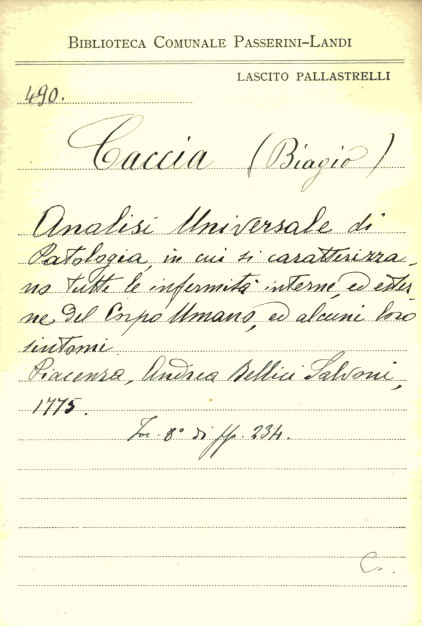 BIBLIOTECA COMUNALE PASSERINI-LANDI
LASCITO PALLASTRELLI
490.
Caccia (Biagio)
Analisi Universale di
Patologia, in cui si caratterizza-
no tutte le infermità interne, ed ester
ne del Corpo Umano, ed alcuni loro
sintomi
Piacenza, Andrea Bellici Salvoni,
1775.
In-8° di pp. 234.
C.